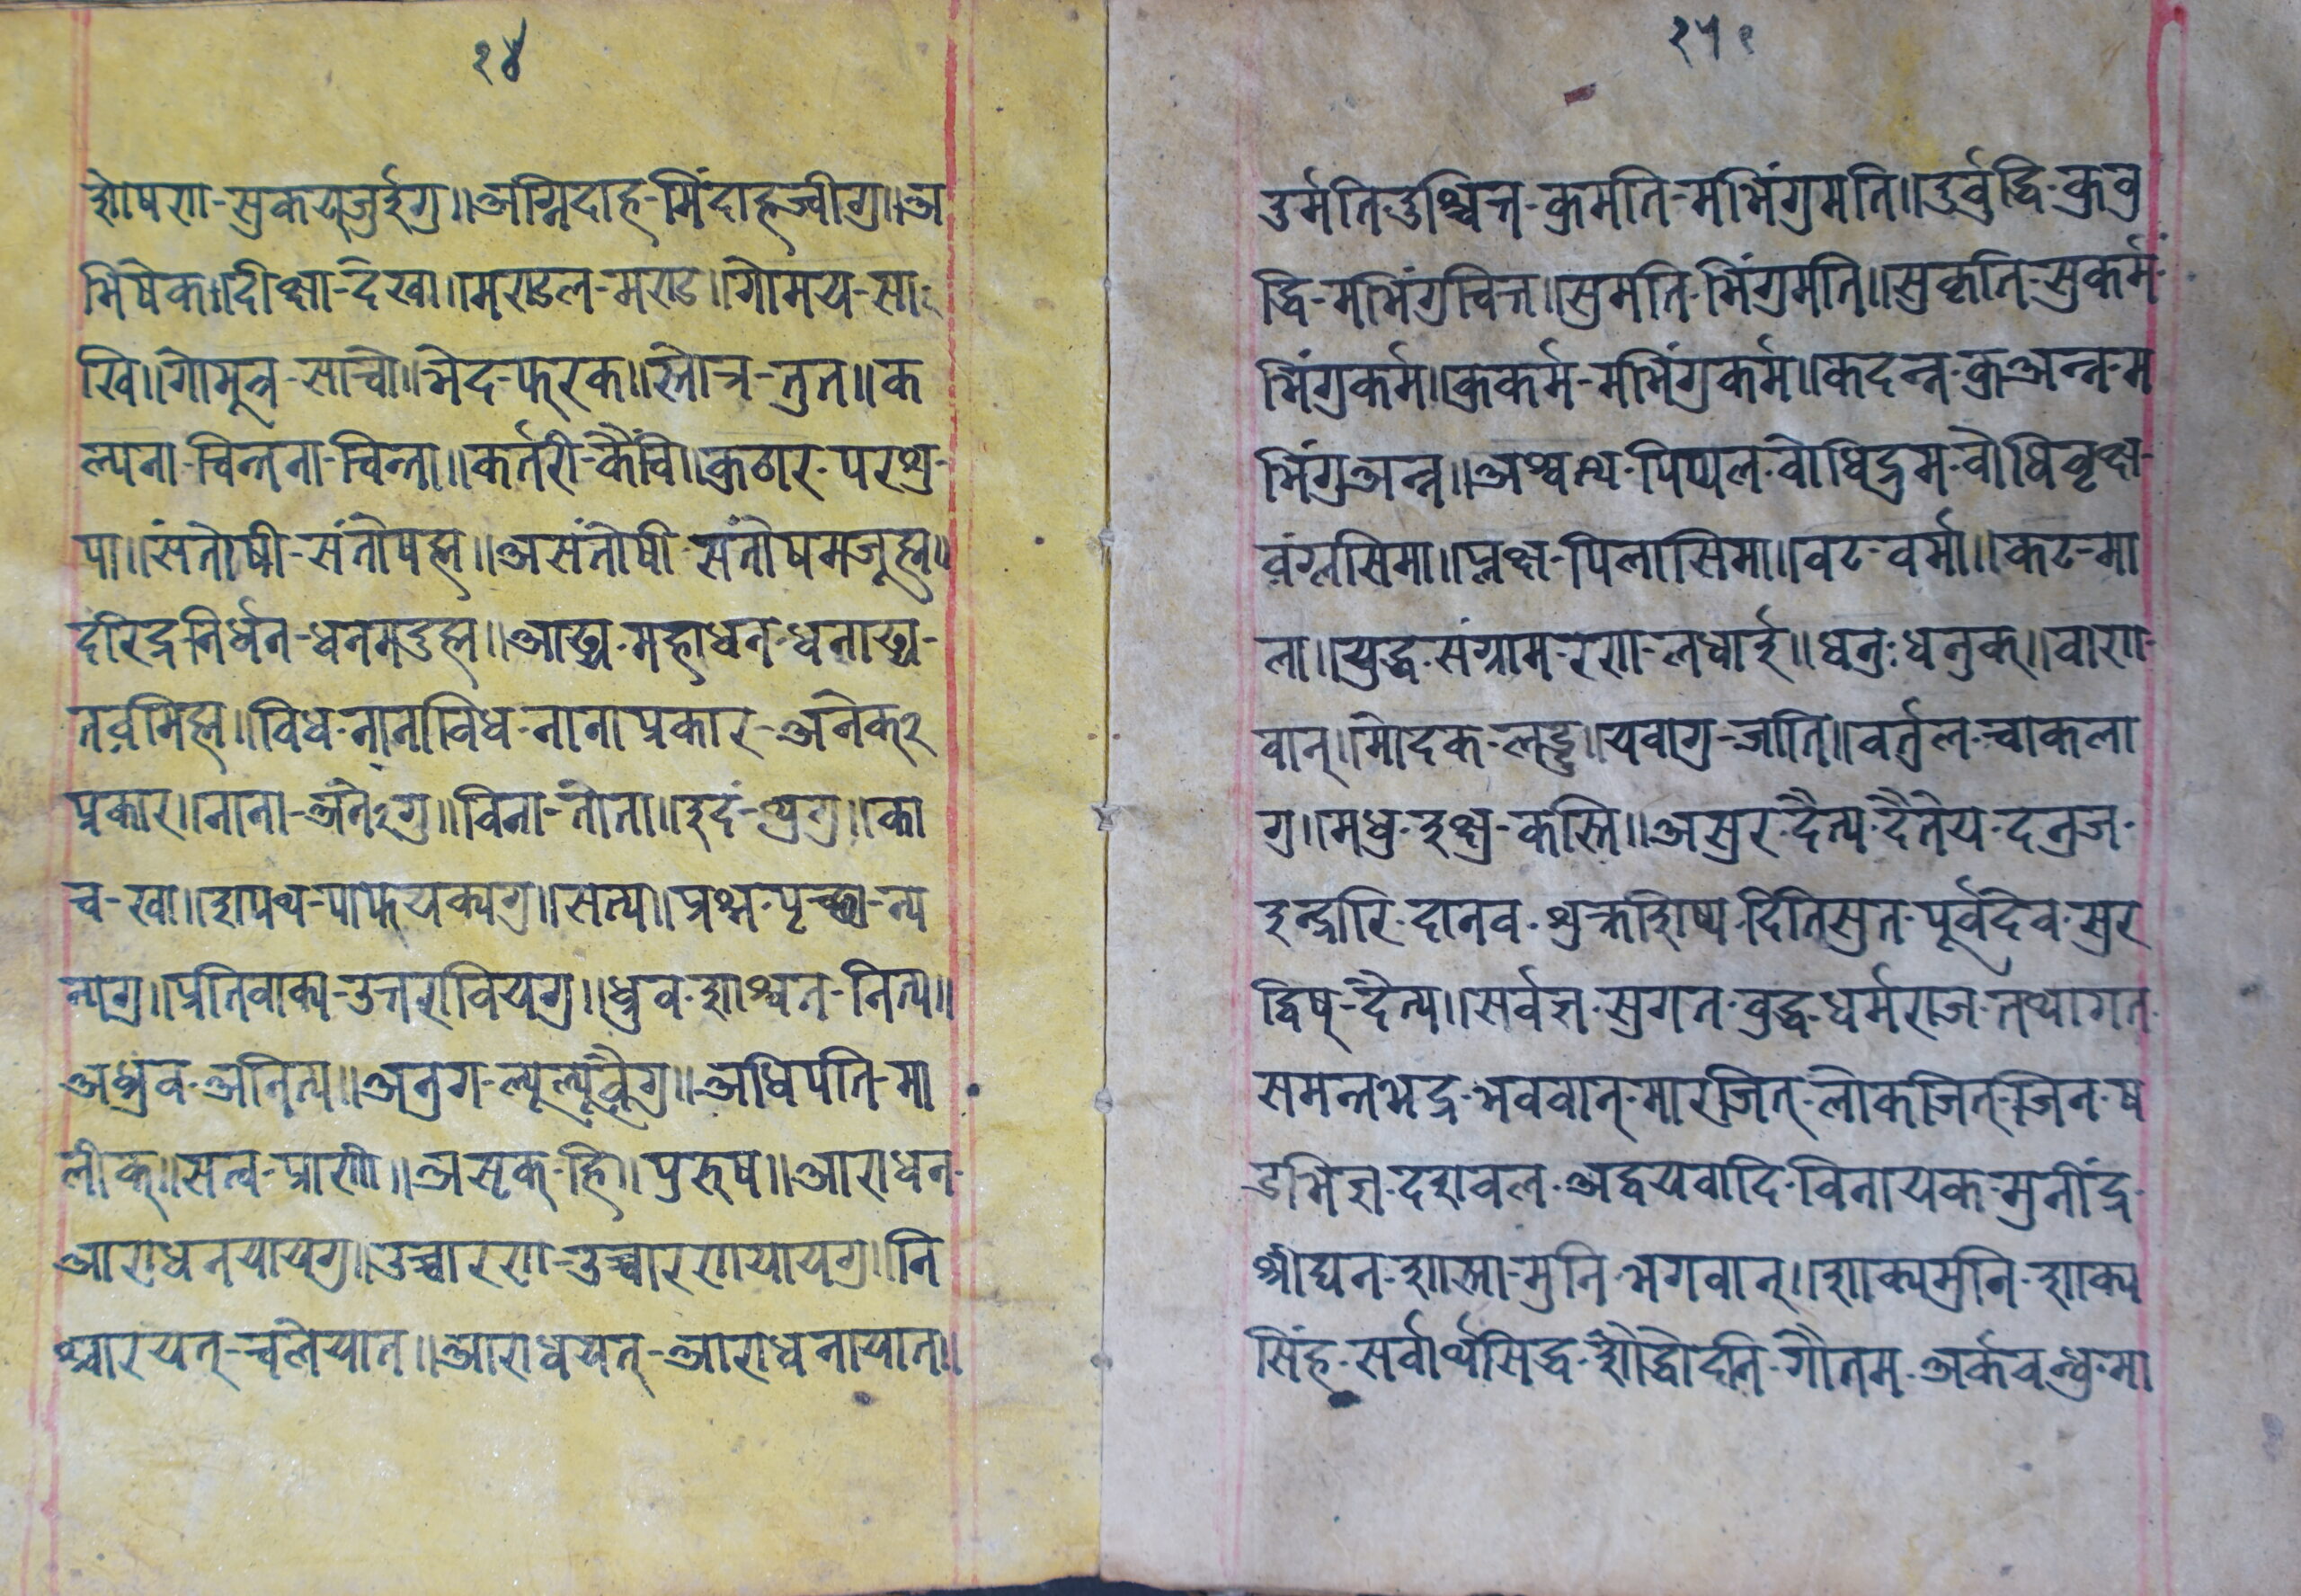 २४
शोषण-सुकययजुईगु॥अग्निदाह-मिंदाहज्वीगु॥अ
भिषेक॥दीक्षा-देखा॥मण्डल-मण्ड॥गोमय-सा-
खि॥गोमूत्र-साच्वो॥भेद-फरक॥स्तोत्र-तुत॥क
ल्पना-चिन्तना-चिन्ता॥कर्तरी-कैंचि॥कुठार-परशु-
पा॥संतोषी-संतोषह्म॥असंतोषी-संतोषमजूह्म॥
दरिद्र-निर्धन-धनमदुह्म॥आढ्य-महाधन-धनाढ्य-
तवमिह्म॥विध-नानाविध-नानाप्रकार-अनेक२
प्रकार॥नाना-अनेगु॥विना-तोता॥इदं-थ्वगु॥का
च-खा॥शपथ-पाफयक्यगु॥सत्य॥प्रश्न-पृच्छा-न्य
न्यगु॥प्रतिवाक्य-उत्तरावियगु॥ध्रुव-शाश्वत-नित्य॥
अध्रुव-अनित्य॥अनुग-ल्यूल्यूवैगु॥अधिपति-मा
लीक्॥सत्व-प्राणी॥असृक्-हि॥पुरुष॥आराधन-
आराधनयायगु॥उच्चारण-उच्चारणयायगु॥नि
श्चारयत्-चलेयात॥आराधयत्-आराधनायात॥
२५
दुर्मति-दुश्चित्त-कुमति-मभिंगुमति॥दुर्वुद्धि-कुवु
द्धि-मभिंगुचित्त॥सुमति-भिंगुमति॥सुकृति-सुकर्म-
भिंगुकर्म॥कुकर्म-मभिंगुकर्म॥कदन्न-कुअन्न-म
भिंगुअन्न॥अश्वत्थ-पिप्पल-वोधिद्रुम-वोधिवृक्ष-
वंग्लसिमा॥प्लक्ष-पिलासिमा॥वट-वर्मा॥कट-मा
ला॥युद्ध-संग्राम-रण-लधाईं॥धनु-धनुक्॥वाण-
वान्॥मोदक-लड्डु॥यवागु-जाति॥वर्तुल-चाकला
गु॥मधु-इक्षु-कस्ति॥असुर-दैत्य-दैतेय-दनुज-
इन्द्रारि-दानव-शुक्रशिष्य-दितिसुत-पूर्वदेव-सुर
द्विष्-दैत्य॥सर्वज्ञ-सुगत-वुद्ध-धर्मराज-तथागत-
समन्तभद्र-भववान्-मारजित्-लोकजित्-जिन-ष
डभिज्ञ-दशवल-अद्वयवादि-विनायक-मुनींद्र-
श्रीघन-शास्ता-मुनि-भगवान्॥शाक्यमुनि-शाक्य
सिंह-सर्वार्थसिद्ध-शौद्धोदनि-गौतम-अर्कवन्धु-मा